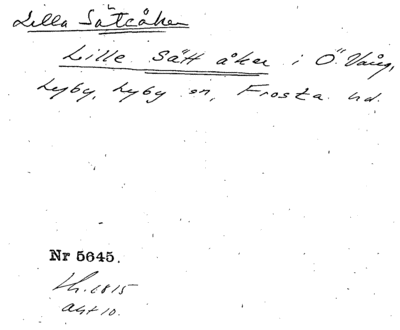 Lilla Sätåker
Lille Sätt åker i Ö. Vång,
Lyby, Lyby sn, Frosta hd.
Nr 5645.
1815
akt 10.